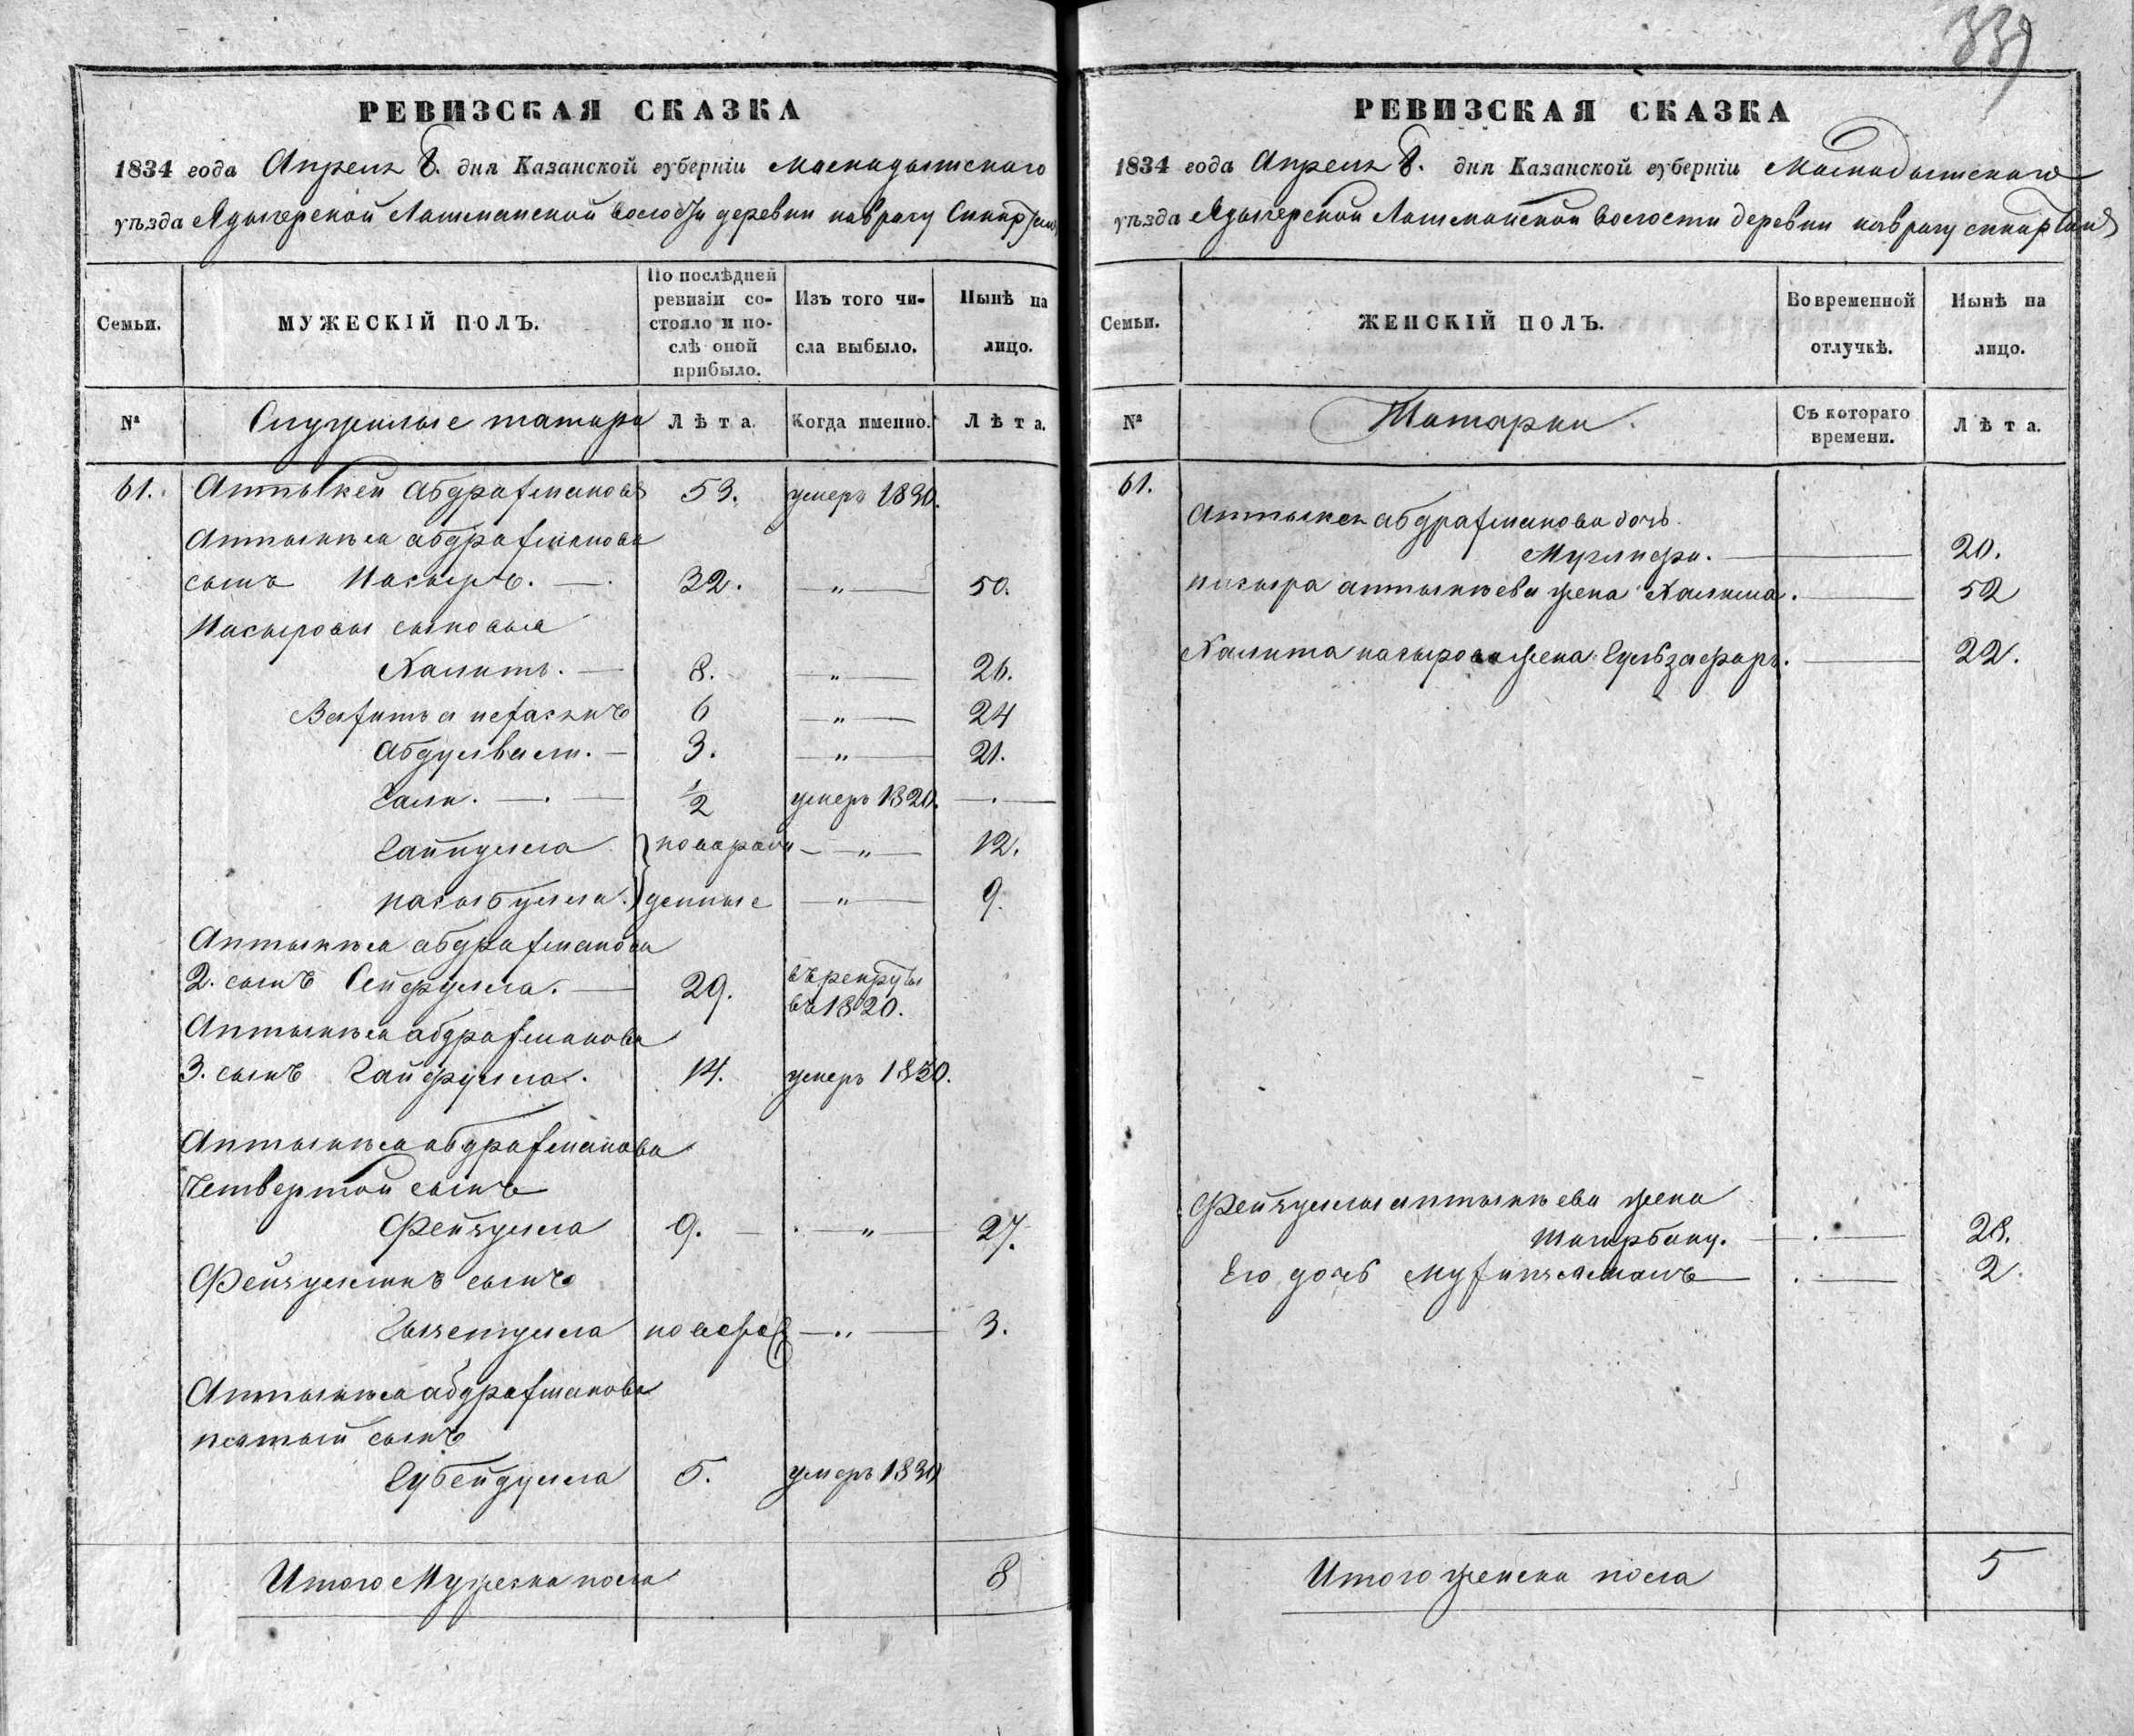 339
РЕВИЗСКАЯ СКАЗКА
1834 года Апреля 8. дня Казанской губерніи Мамадышскаго
уѣзда Адыгерской Лашманской волости деревни
Семьи.
МУЖЕСКІЙ ПОЛЪ.
По послѣдней ревизіи состояло и послѣ оной прибыло.
Изъ того числа выбыло.
Нынѣ на лицо.
№
Служилые татара
Лѣта.
Когда именно.
Лѣта.
61. Аптыкей Абдрахмановъ 53. умеръ 1830.
Аптыкѣя абдрахманова
сынъ Насыръ. — 32. — „ — 50.
Насыровы сыновья
Халитъ. — 8. — „ — 26.
6 — „ — 24
Абдулвали. — 3. — „ — 21.
Гали. — . — 1/2 умеръ 1820. — . —
новорож — „ — 12.
денные — „ — 9.
Аптыкѣя абдрахманова
2. сынъ Сейфулла. — 29. въ рекруты
въ 1820.
Аптыкѣя абдрахманова
3. сынъ Гайфулла. 14. умеръ 1830.
Аптыкѣя абдрахманова
четвертой сынъ
Фейзулла 9. — . — „ — 27.
Фейзуллинъ сынъ
новорож — „ — 3.
Аптыкѣя абдрахманова
пятый сынъ
Губейдулла 5. умеръ 1830
Итого Мужеска пола 8
РЕВИЗСКАЯ СКАЗКА
1834 года Апреля 8. дня Казанской губерніи Мамадышскаго
уѣзда Адыгерской Лашманской волости деревни
Семьи.
ЖЕНСКІЙ ПОЛЪ.
Во временной отлучкѣ.
Нынѣ на лицо.
№
Татарки.
Съ котораго времени.
Лѣта.
61.
Аптыкея абдрахманова дочь
— 20.
насыра аптыкѣева жена Халима. — 52
Халита насырова жена — 22.
Фейзуллы аптыкѣева жена
Шагрбану. — . — 28.
Его дочь — . — 2.
Итого женска пола 5